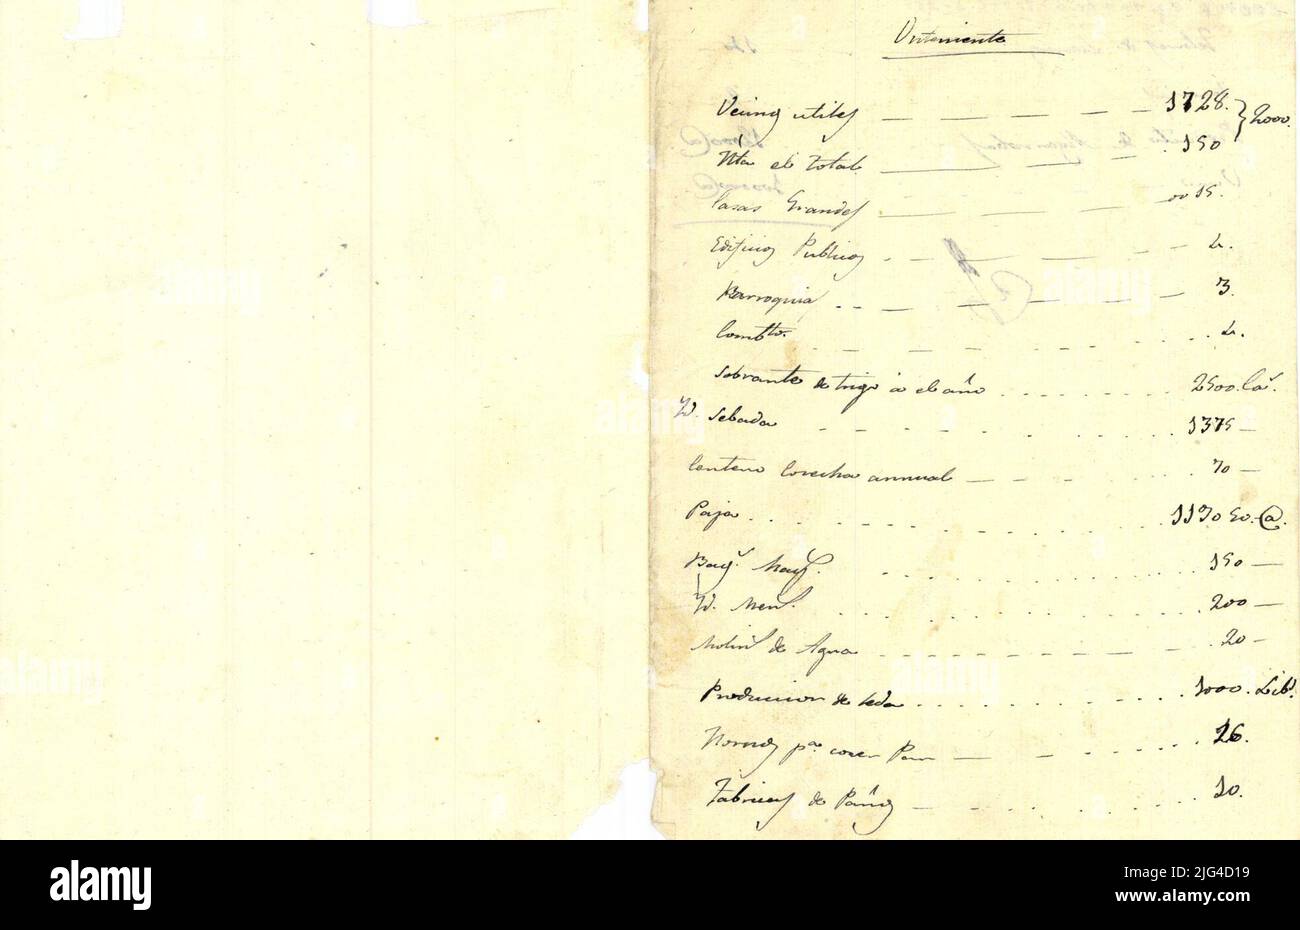 Onteniente
Vecinos utiles 1728. } 2000.
Hta el total 150
Casas Grandes 15.
Edificios Publicos 4.
Parroquias 3.
Combtos. 4.
Sobrante de trigo à el año 2500. Cas.
Yd. Sebada 1375
Centeno Cosecha annual 70
Paja 113050 @.
Bags. Mays. 150
Yd. Mens. 200
Molins de Agua 20
Produccion de seda 1000. Libs.
Hornos pa. cocer Pan 26.
Fabricas de Paños 10.
alamy
Image ID: 2JG4D19
www.alamy.com